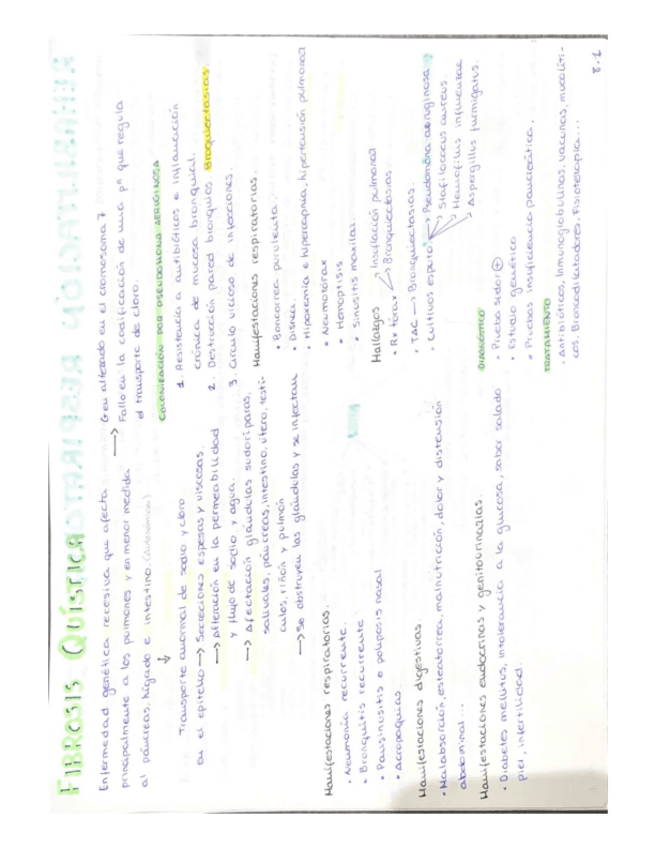 FIBROSIS QUÍSTICA
Enfermedad genética recesiva que afecta
principalmente a los pulmones y en menor medida
al páncreas, hígado e intestino. (Autosómica)
→ Gen alterado en el cromosoma 7
Fallo en la codificación de una pⁿ que regula
el transporte de cloro.
↓
Transporte anormal de sodio y cloro
en el epitelio → Secreciones espesas y viscosas.
→ Alteración en la permeabilidad
y flujo de sodio y agua.
→ Afectación glándulas sudoríparas,
salivales, páncreas, intestino, útero, testí-
culos, riñón y pulmón
→ Se obstruyen las glándulas y se infectan
COLONIZACIÓN POR PSEUDOMONA AERUGINOSA
1. Resistencia a antibióticos e inflamación
crónica de mucosa bronquial.
2. Destrucción pared bronquios. Bronquiectasias.
3. Círculo vicioso de infecciones.
Manifestaciones respiratorias.
• Neumonía recurrente.
• Bronquitis recurrente
• Pansinusitis o poliposis nasal
• Acropaquias
Manifestaciones respiratorias.
• Broncorrea purulenta.
• Disnea.
• Hipoxemia e hipercapnia, hipertensión pulmonar
• Neumotórax
• Hemoptisis
• Sinusitis maxilar.
Manifestaciones digestivas
• Malabsorción, esteatorrea, malnutrición, dolor y distensión
abdominal...
Manifestaciones endocrinas y genitourinarias.
• Diabetes mellitus, intolerancia a la glucosa, sabor salado
piel, infertilidad.
Hallazgos
• Rx tórax → Insuflación pulmonar
→ Bronquiectasias
• TAC → Bronquiectasias.
• Cultivos esputo → Pseudomona aeruginosa
→ Stafilococus aureus
→ Hemofilus influenzae
→ Aspergillus fumigatus.
DIAGNÓSTICO
• Prueba sudor ⊕
• Estudio genético
• Pruebas insuficiencia pancreática.
TRATAMIENTO
• Antibióticos, Inmunoglobulinas, vacunas, mucolíti-
cos, Broncodilatadores, Fisioterapia...